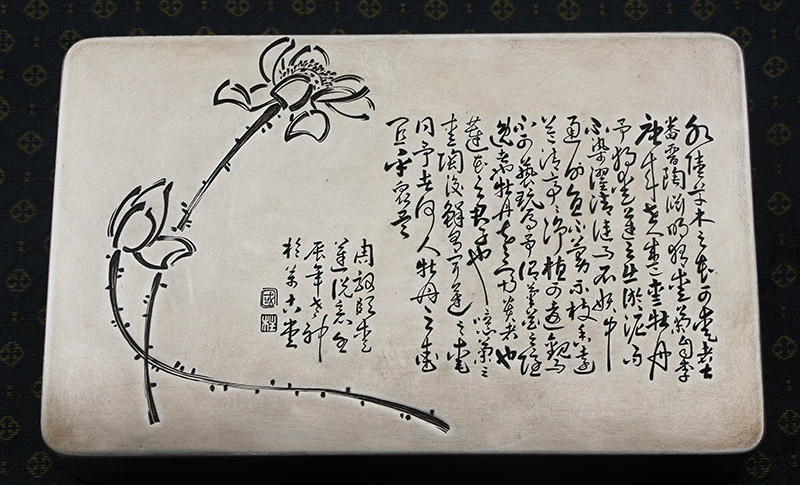 水陸草木之花可愛者甚
蕃晉陶淵明獨愛菊自李
唐来世人甚愛牡丹
予獨愛蓮之出淤泥而
不染濯清漣而不妖中
通外直不蔓不枝香遠
益清亭亭淨植可遠觀而
不可褻玩焉予謂菊花之隱
逸者牡丹花之富貴者也
蓮花之君子也噫菊之
愛陶後鮮有聞蓮之愛
同予者何人牡丹之愛
宜乎衆矣
周敦頤愛
蓮説意
辰年
於